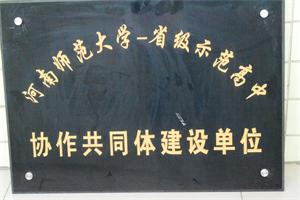 河南师范大学-省级示范高中
协作共同体建设单位